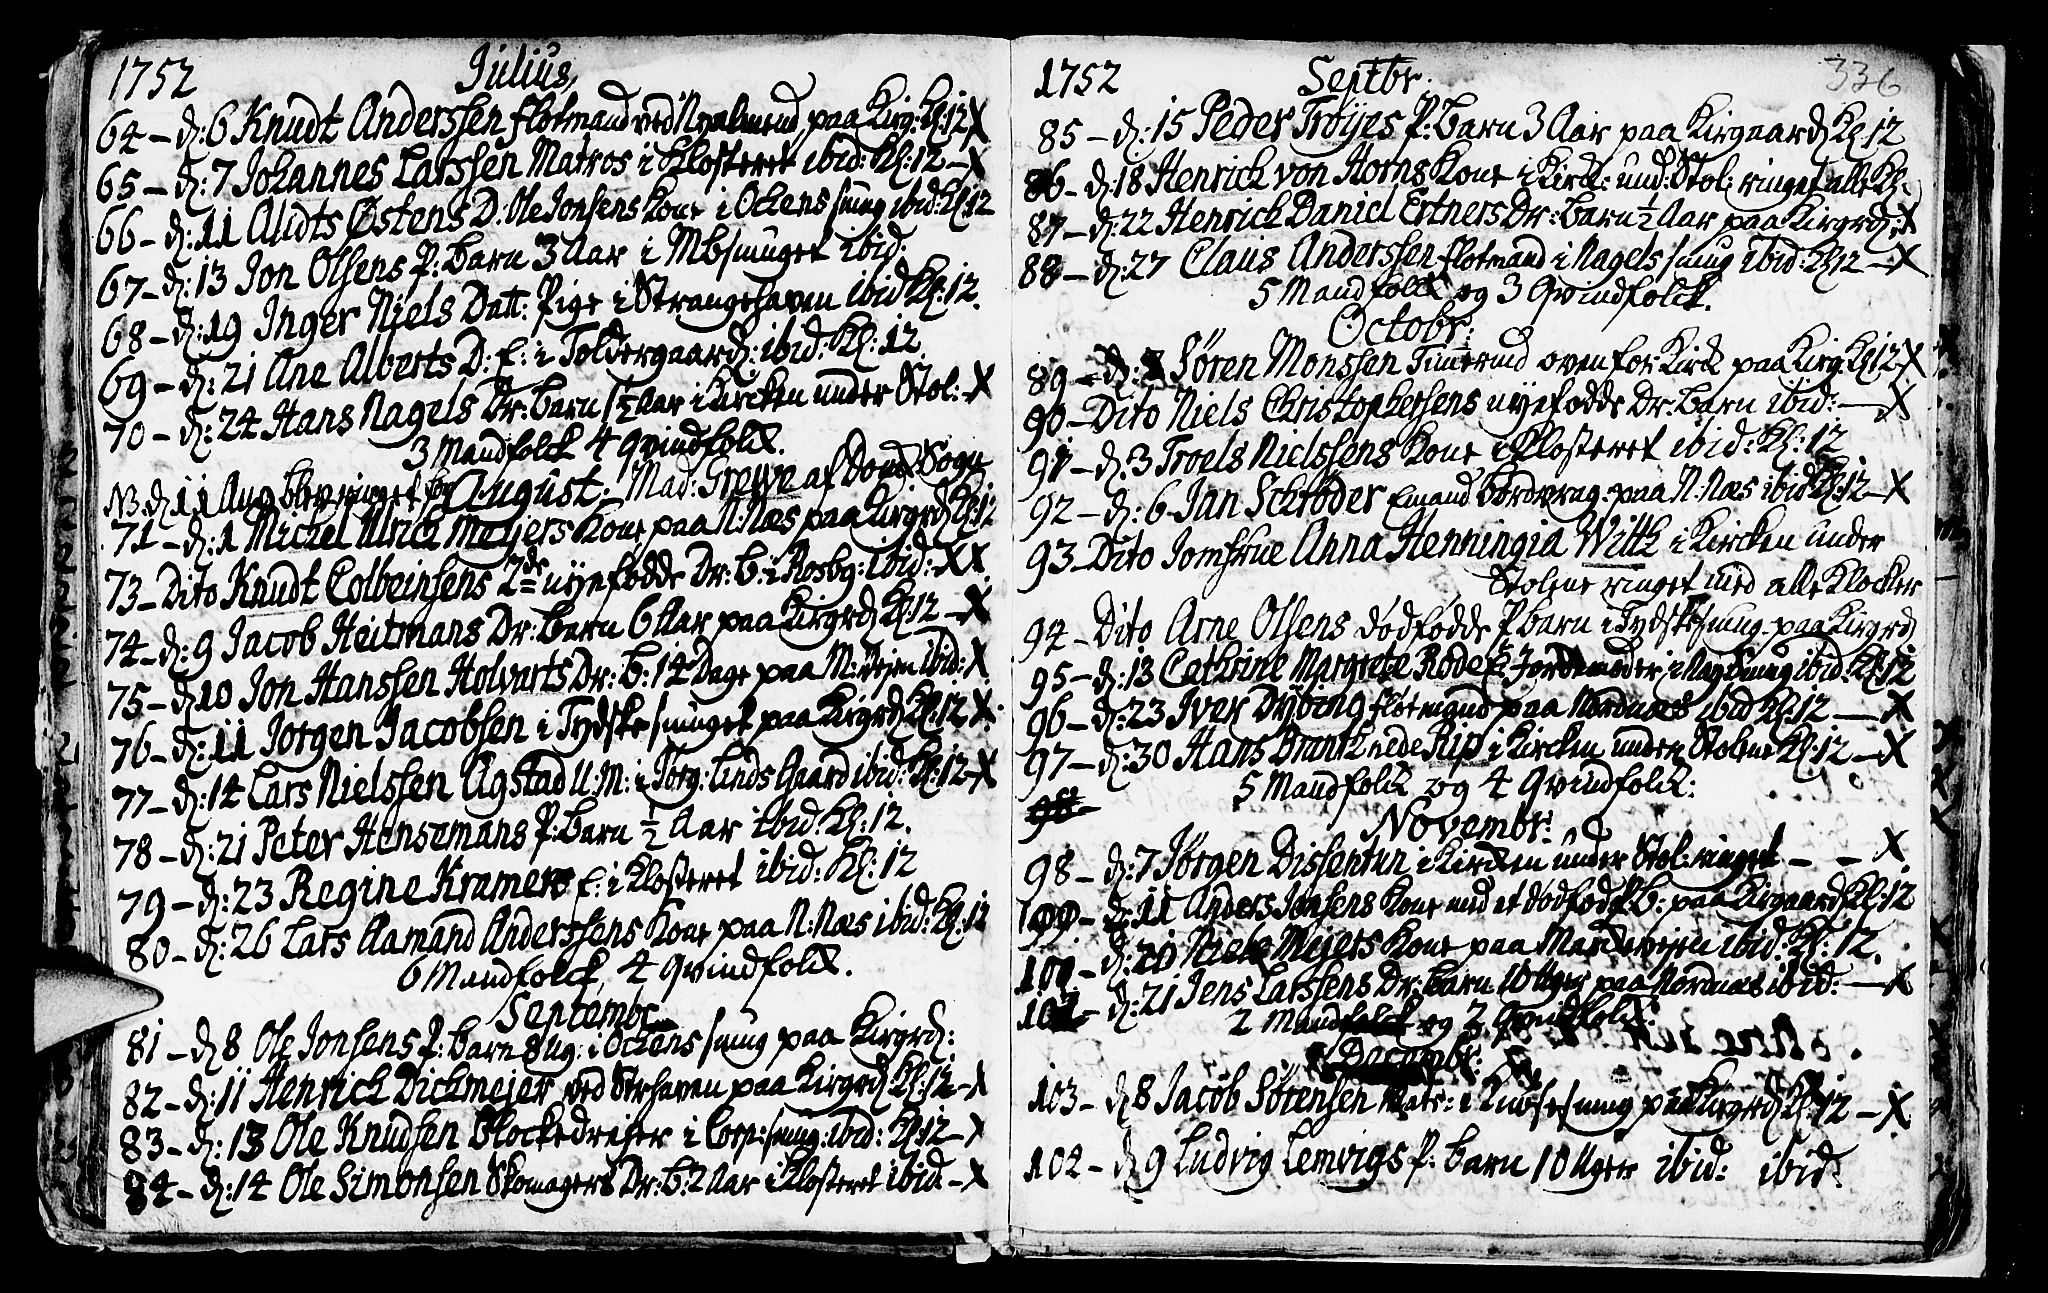 1752 Julius,
64 - d: 6 Knudt Anderssen flotmand ved Nyalmend paa Kirg: Kl: 12 X
65 - d: 7 Johannes Larssen Matros i Klosteret ibid: Kl: 12 - X
66 - d: 11 Alidts Østens D. Ole Jonsens Kone i Ockens smug ibid: Kl: 12
67 - d: 13 Jon Olsens P: barn 3 Aar i Mbsmuget ibid.
68 - d: 19 Inger Niels Datt: Pige i Strangehaven ibid Kl: 12.
69 - d: 21 Ane Alberts D: E: i Toldergaard: ibid: Kl: 12
70 - d: 24 Hans Nagels Dr: barn 1½ Aar i Kircken under Stol: X
3 Mandfolck 4 Qvindfolck.
NB. d: 11 Aug blev ringet for Mad: Grewe af Domk: Sogn
August:
71 - d: 1 Michel Ulrich Meyers Kone paa N: Næs paa Kirgrd Kl: 12
73 - Dito Knudt Colbeinsens 2de nyefødde Dr: B: i Rosbg: ibid: X X.
74 - d: 9 Jacob Heitmans Dr: barn 6 Aar paa Kirgrd Kl: 12 - X
75 - d 10 Jon Hanssen Holvarts Dr: B: 14 Dage paa M: Vejen ibid: X
76 - d: 11 Jorgen Jacobsen i Tydske smuget paa Kirgrd Kl: 12 X.
77 - d: 14 Lars Nielssen Agstad U: M: i Jorg: Linds Gaard ibid: Kl: 12 - X
78 - d: 21 Peter Hensemans P: barn ½ Aar ibid: Kl: 12.
79 - d: 23 Regine Kramers E: i Klosteret ibid: Kl: 12
80 - d: 26 Lars Aamand Anderssens Kone paa N: Næs ibid: Kl: 12
6 Mandfolck, 4 Qvindfolck.
Septembr.
81 - d 8 Ole Jonsens P: barn 8 Ug: i Ockens smug paa Kirgrd:
82 - d: 11 Henrich Dickmejer ved Strhaven paa Kirgrd Kl: 12 - X
83 - d: 13 Ole Knudsen Blockedrejer i Corp: smug: ibid: Kl: 12 - X
84 - d: 14 Ole Simonsen Skomagers Dr: B: 2 Aar i Klosteret ibid - X
1752 Septbr. 336
85 - d: 15 Peder Trøyes P: barn 3 Aar paa Kirgaard Kl 12
86 - d: 18 Henrich von Horns Kone i Kirck: und: Stol: ringet alle Kl.
87 - d: 22 Henrich Daniel Ertners Dr: barn ½ Aar paa Kirgrd: X
88 - d: 27 Claus Anderssen flotmand i Nagels smug ibid: Kl 12 - X
5 Mandfolck og 3 Qvindfolck.
Octobr:
89 - d: Søren Monssen Timermd oven for Kirck paa Kirg Kl 12 X
90 - Dito Niels Christophersens nyefødde Dr: Barn ibid: - X
91 - d: 3 Troels Nielssens Kone i Klosteret ibid: Kl: 12
92 - d: 6 Jan Schrøder Emand paa N: Næs ibid Kl: 12 - X
93 - Dito Jomfrue Anna Henningia Witth i Kircken under
Stolene ringet med alle Klocker
94 - Dito Arne Olsens dødfødde P. barn i Tydskesmug. paa Kirgrd
95 - d: 13 Cathrine Margrete Rode E: Jordemoder i smug ibid: Kl 12
96 - d: 23 Iver Dybing flotmand paa Nordnæs ibid Kl: 12 - X
97 - d: 30 Hans Brantk nede Rip i Kircken under Stolene Kl: 12 - X
5 Mandfolck og 4 Qvindfolck:
98
Novembr:
98 - d: 7 Jørgen Dissentun i Kircken under Stol: ringet - - X
99 - d: 11 Anders Jonsens Kone med et dødfød P. B: paa Kirgaard Kl: 12
100 - d: 20 Niels Mejers Kone paa Marckevejen ibid: Kl: 12.
102 - d: 21 Jens Larssens Dr: barn 10 Uger paa Nordnæs ibid: - X
2 Mandfolck og 2 Qvindfolck.
Decembr:
103 - d 8 Jacob Sørensen Matr: i Knøsesmug paa Kirgrd Kl: 12 - X
104 - d 9 Ludvig Lemvigs P: barn 10 Uger ibid: ibid: